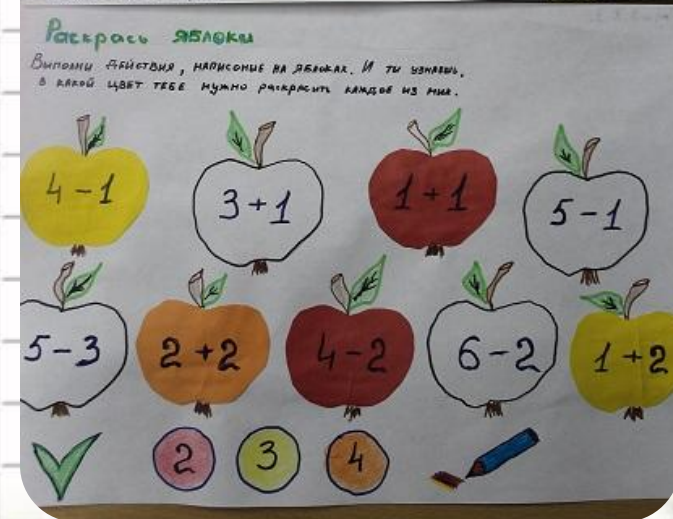 Раскрась яблоки
Выполни действия, написоные на яблоках. И ты узнаешь,
в какой цвет тебе нужно раскрасить каждое из них.
4-1 3+1 1+1 5-1
5-3 2+2 4-2 6-2 1+2
2 3 4